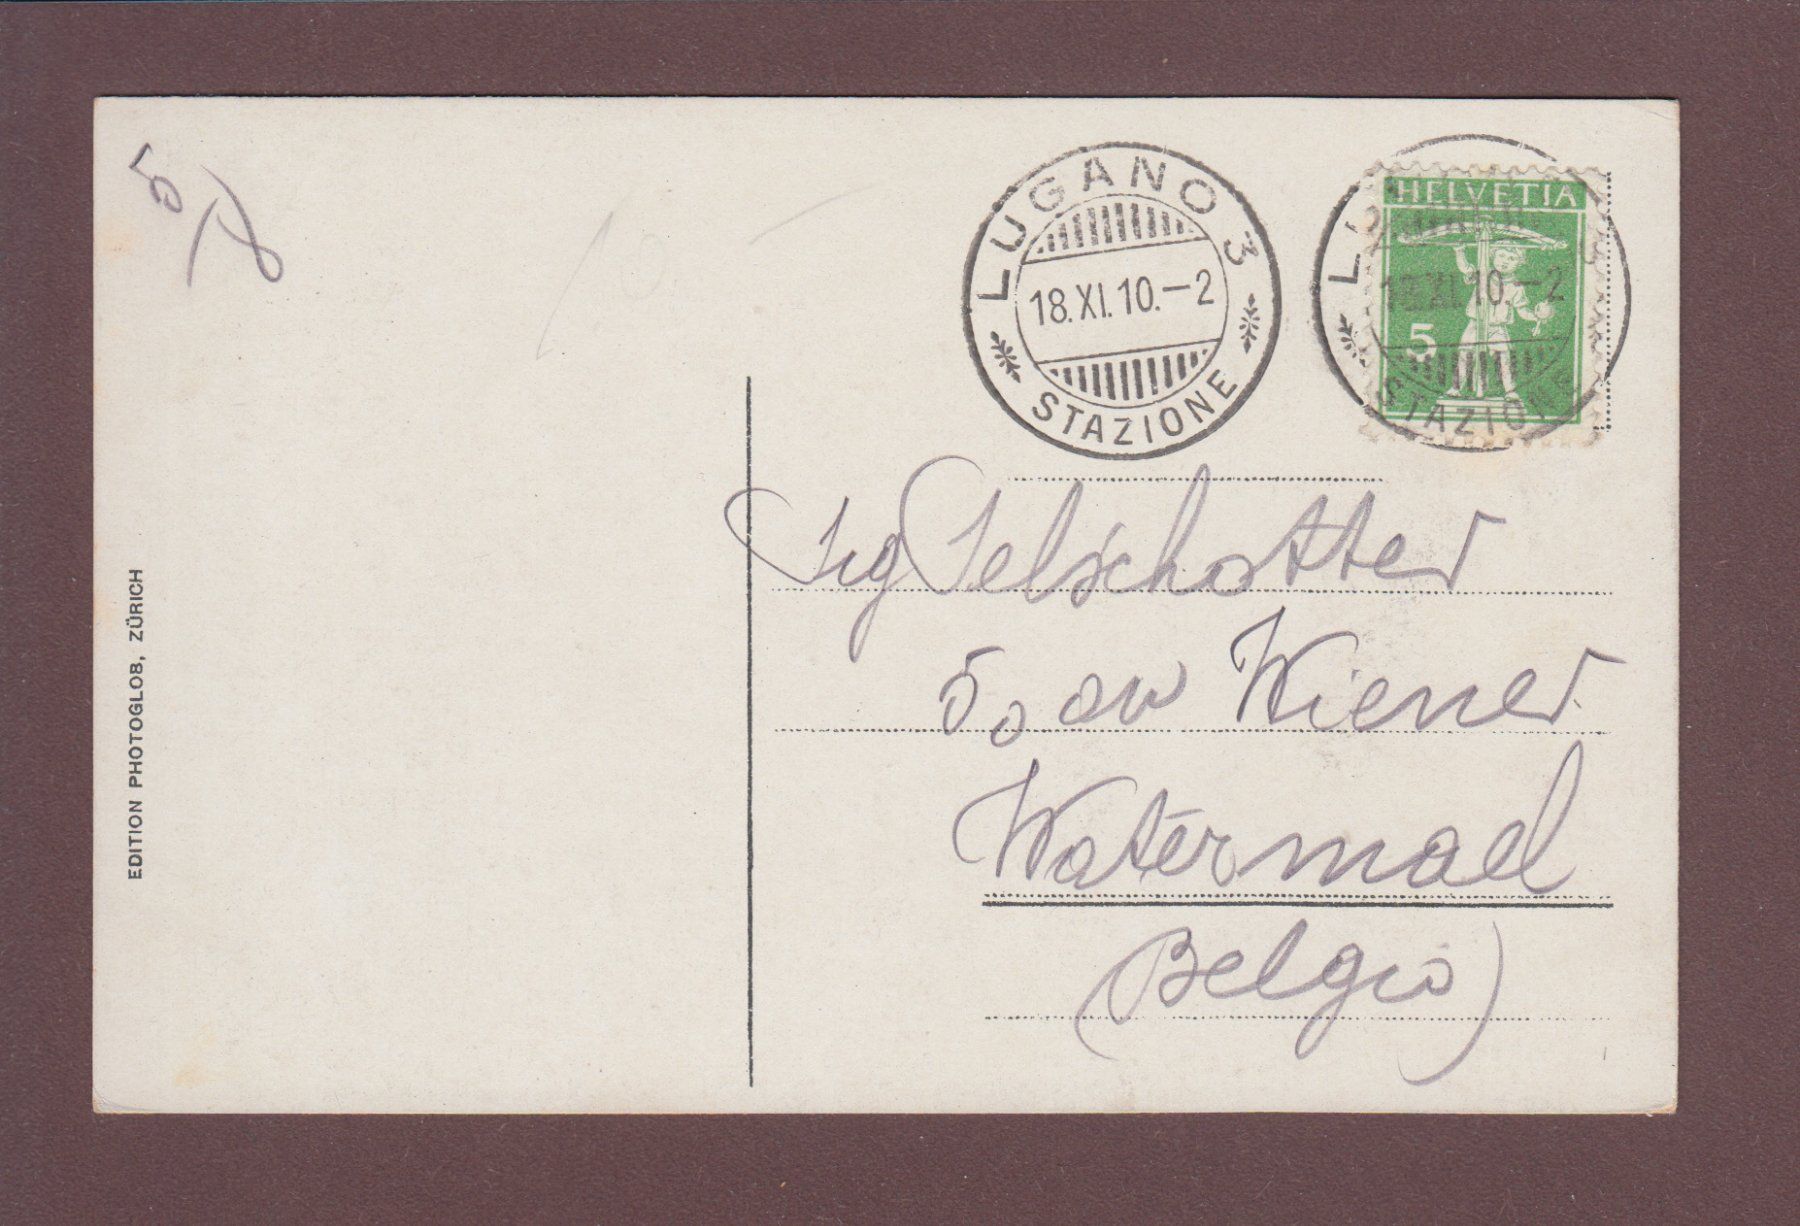 5
LUGANO 3
18.XI.10.-2
STAZIONE
HELVETIA
5
LUGANO 3
18.XI.10.-2
STAZIONE
Sig Selschotter
50 av Wiener
Watermael
(Belgio)
EDITION PHOTOGLOB, ZÜRICH